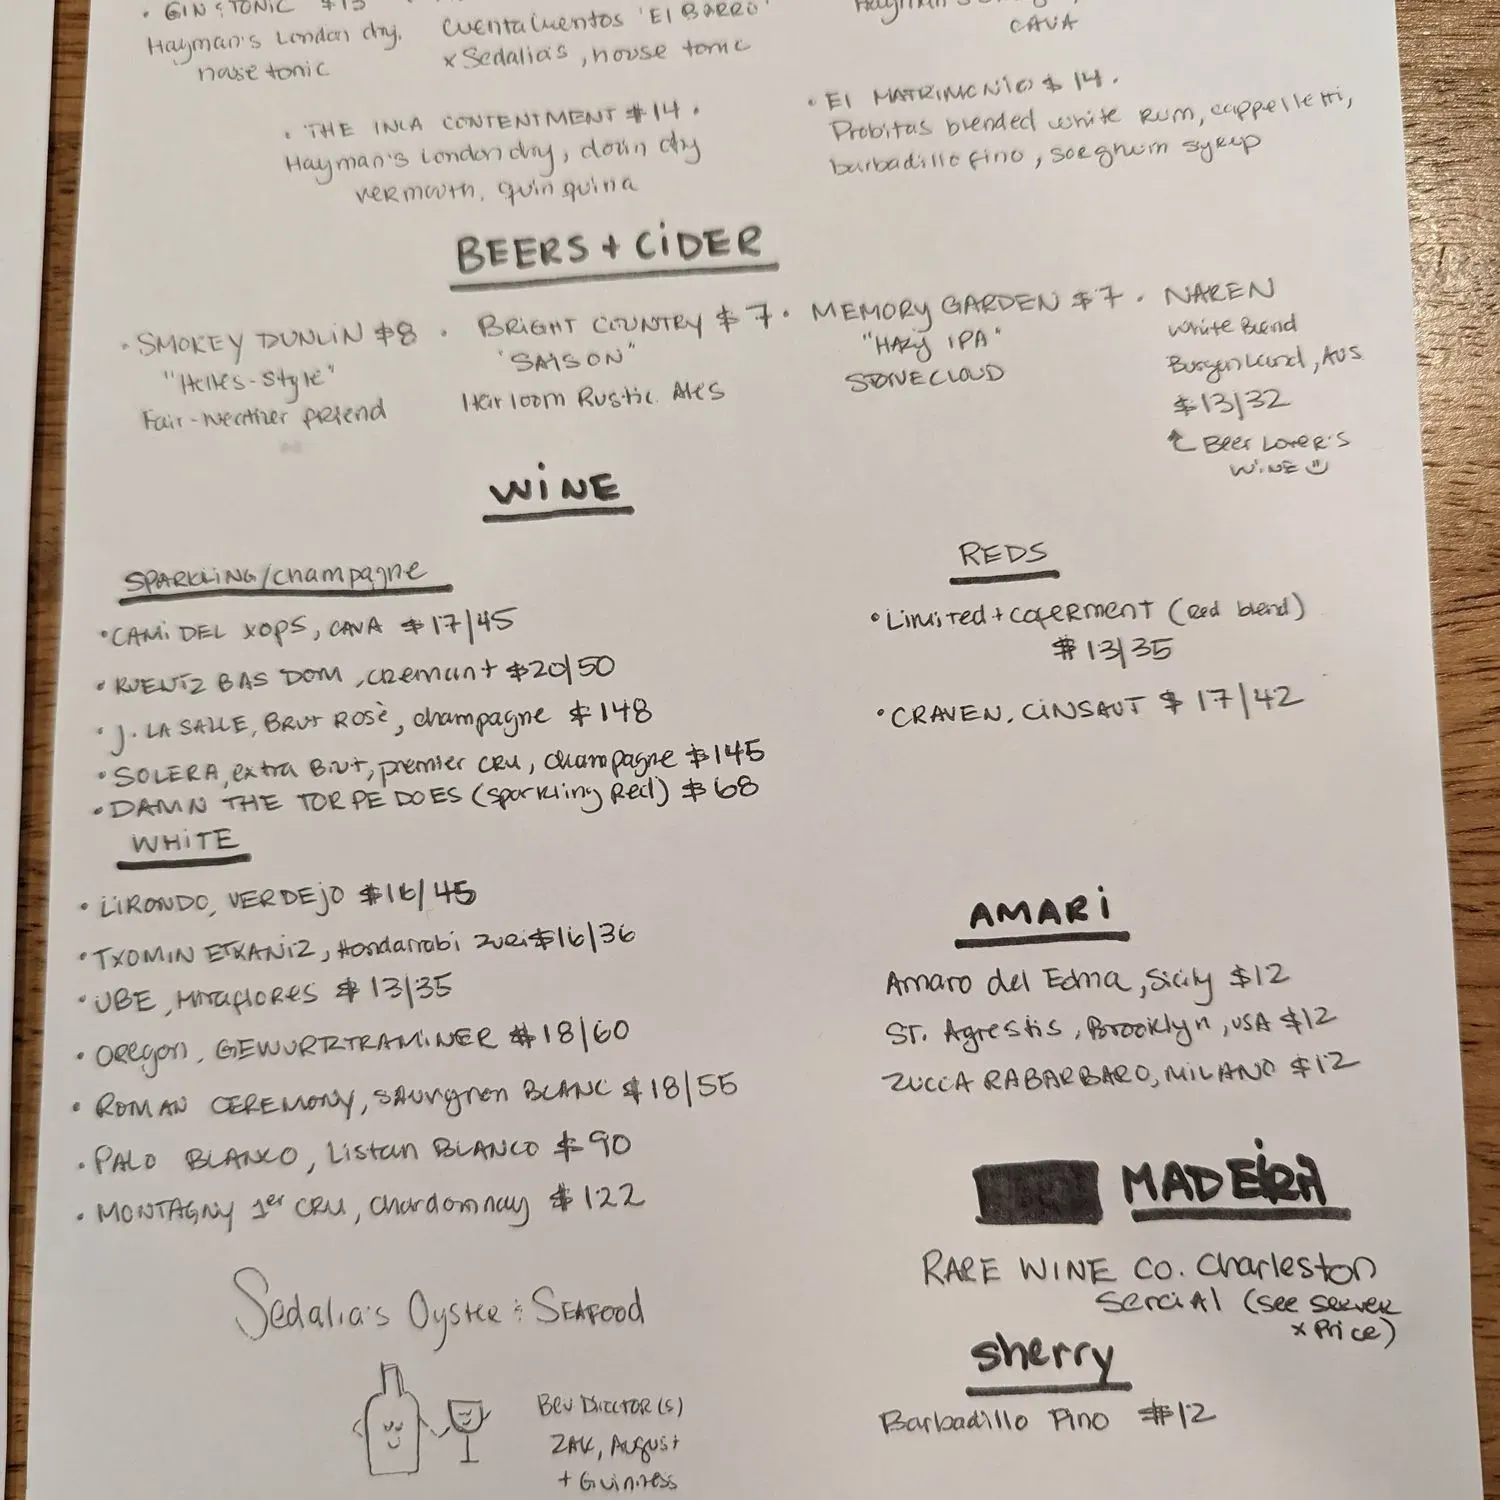 • GIN & TONIC $13
Hayman's London dry,
house tonic
Cuentacuentos 'El BARRO'
x Sedalia's, house tonic
Hayman's
CAVA
• THE INCA CONTENTMENT $14 •
Hayman's London dry, dolin dry
vermouth, quinquina
• El MATRIMONIO $14 •
Probitas blended white Rum, cappelletti,
barbadillo fino, sorghum syrup
BEERS + CiDER
• SMOKEY DUNLIN $8 •
"Helles-Style"
Fair-weather friend
BRIGHT COUNTRY $7 •
"SAISON"
Heirloom Rustic Ales
MEMORY GARDEN $7 •
"HAZY IPA"
STONECLOUD
NAREN
White Blend
Burgenland, AUS
$13/32
Beer Lover's
WiNE
WiNE
SPARKLING/champagne
• CAMi DEL XOPS, CAVA $17/45
• RUENTZ BAS DOM, cremant $20/50
• J. LA SALLE, BRUT ROSÈ, champagne $148
• SOLERA, extra Brut, premier CRU, champagne $145
• DAMN THE TORPEDOES (sparkling Red) $68
WHiTE
• LiRONDO, VERDEjO $16/45
• TXOMIN ETXANIZ, Hondarrabi zuri $16/36
• UBE, Miraflores $13/35
• Oregon, GEWURTRTRAMINER $18/60
• ROMAN CEREMONY, sauvgnon BLANC $18/55
• PALO BLANCO, Listan BLANCO $90
• MONTAGNY 1er CRU, Chardonnay $122
REDS
• Limited + coferment (Red blend)
$13/35
• CRAVEN, CiNSAUT $17/42
AMARi
Amaro del Edna, Sicily $12
ST. Agrestis, Brooklyn, USA $12
ZUCCA RABARBARO, MILANO $12
MADEiRA
RARE WINE CO. Charleston
Sercial (see server
x Price)
sherry
Barbadillo Fino $12
Sedalia's Oyster & SEAFOOD
Bev Director(s)
ZAK, August
+ Guinness